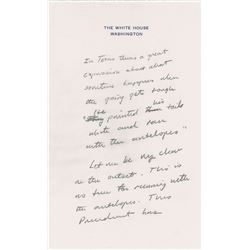 THE WHITE HOUSE
WASHINGTON
In Texas there's a great
expression about
sometimes happens when
the going gets tough
they painted their tails
white and ran
with the antelopes"
Let me be very clear
at the outset. This is
no time for running with
the antelopes. This
President has